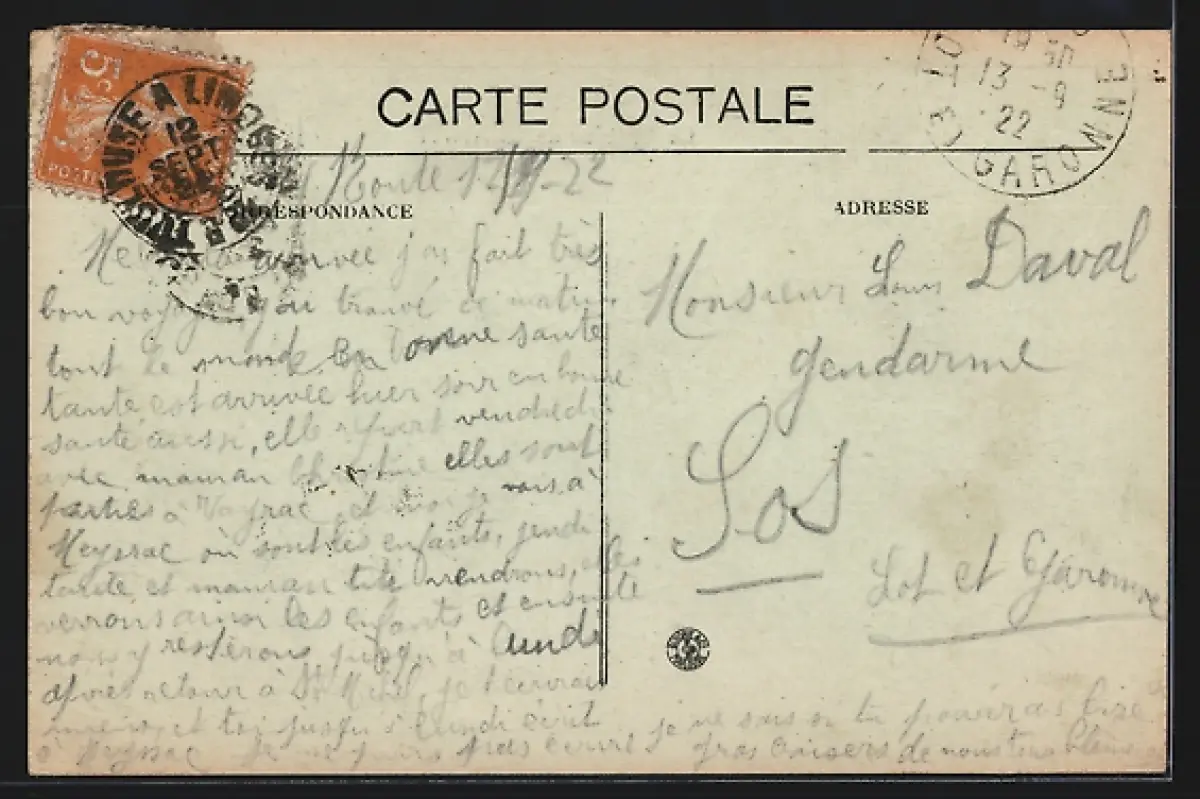 5c
POSTES
TOULOUSE A LIMOGES
12
SEPT
CARTE POSTALE
19 30
13 -9
22
LOT-ET-GARONNE
Route 12/9-22
CORRESPONDANCE
ADRESSE
arrivée j'ai fait très
bon voyage, j'ai trouvé ce matin
tout le monde en bonne santé
tante est arrivée hier soir en bonne
santé aussi, elle repart vendredi
avec maman elles sont
parties à Vayrac, et moi je vais à
Meyssac où sont les enfants, jeudi
tante et maman viendrons, elles
verrons ainsi les enfants et ensuite
nous y resterons jusqu'à lundi
après retour à St Michel, je t'écrirai
et toi jusqu'à lundi écrit
à Meyssac je ne puis pas écrire
je ne sais si tu pourras lire
gros baisers de nous tous
Monsieur Louis Daval
gendarme
Sos
Lot et Garonne